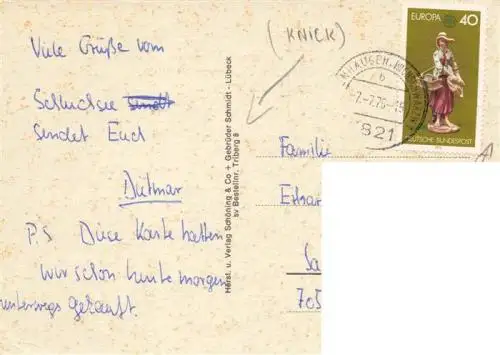 Viele Grüße vom
Schluchsee
sendet Euch
Dittmar
P.S Diese Karte hatten
wir schon heute morgen
unterwegs gekauft.
(KNICK)
Herst. u. Verlag Schöning & Co + Gebrüder Schmidt - Lübeck
sv Bestellnr. Triberg 8
EUROPA 40
DEUTSCHE BUNDESPOST
b
821
Familie
705